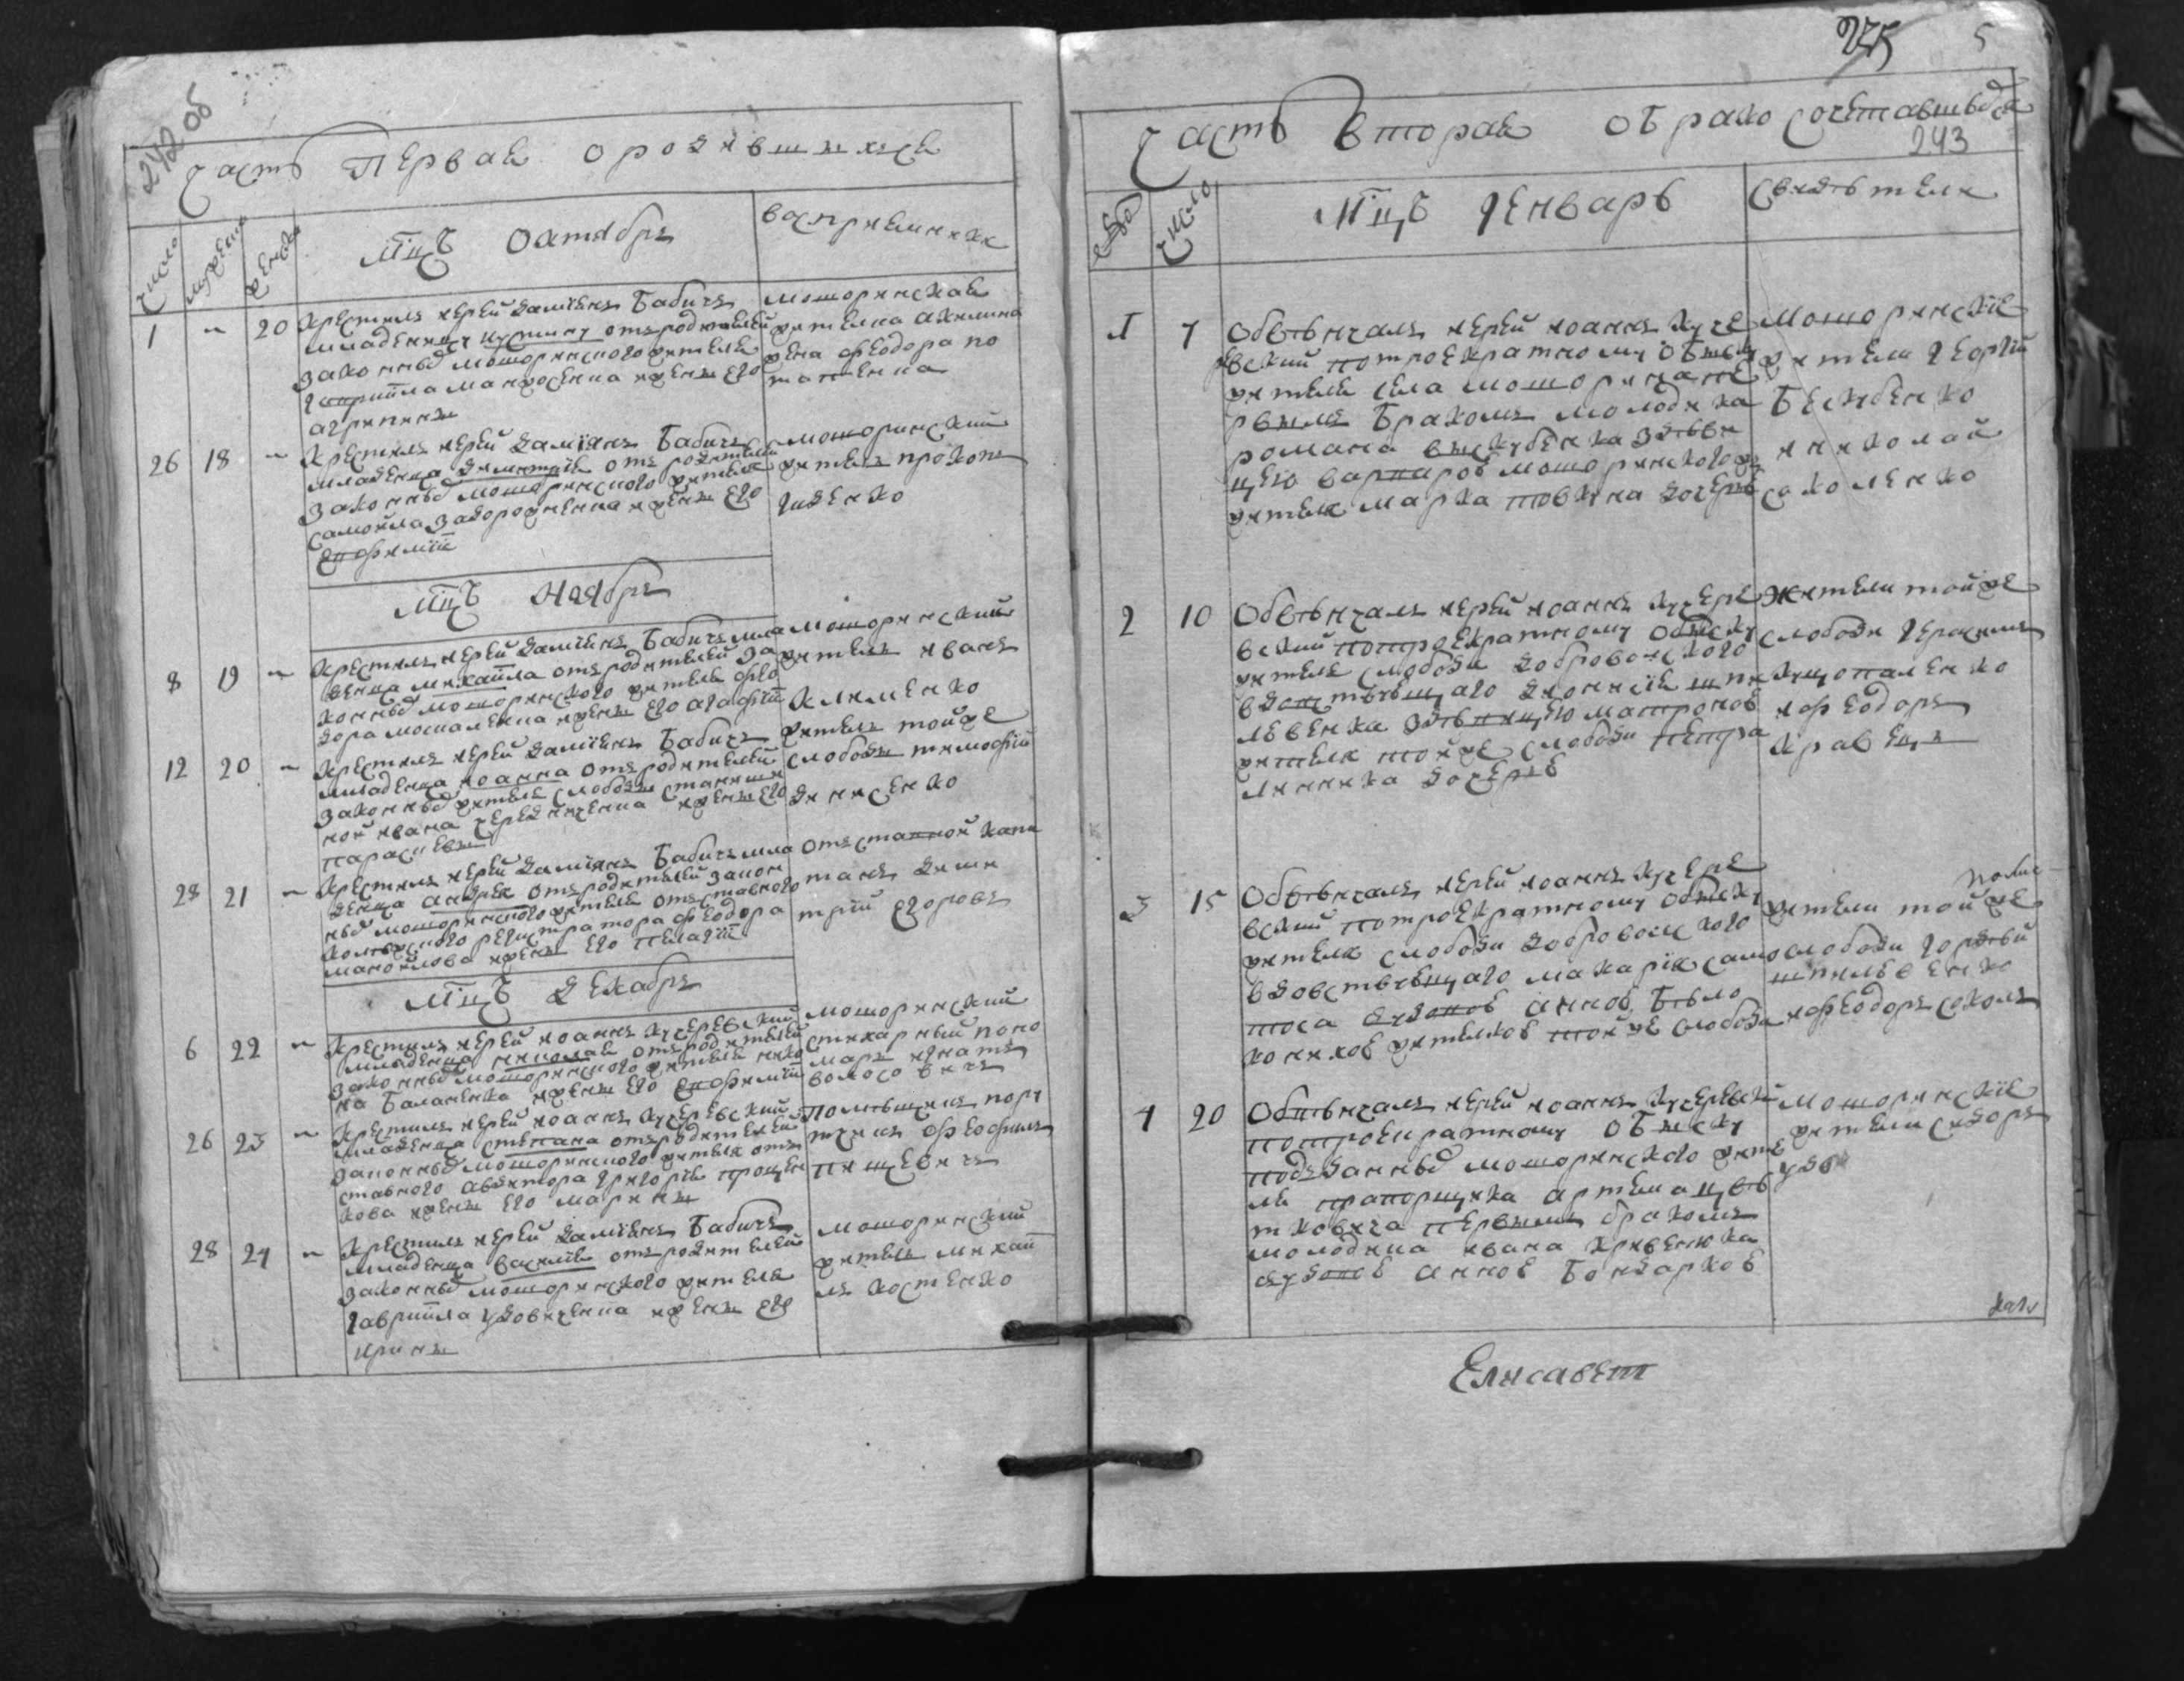 242 об
Часть первая о родившихся
число
мужеска
женска
мцъ октябрь
восприемники
1 ~ 20 крестилъ иерей Даміянъ Бабичъ
младеницу иустину отъ родителей
законныхъ мошоринского жителя
гавриила мануоленка и жены его
агрипины
мошоринская
жителка акилина
жена феодора по
тапенка
26 18 ~ крестилъ иерей Даміянъ Бабичъ
младенца Димитрія отъ родителей
законныхъ мошоринского жителя
самойла задорожненка и жены его
евфиміи
мошоринский
житель прокопъ
гиденко
мцъ ноябрь
8 19 ~ крестилъ иерей Даміянъ Бабичъ мла
денца михаила отъ родителей за
конныхъ мошоринского жителя фео
дора москаленка и жены его агафіи
мошоринский
житель иванъ
клименко
12 20 ~ крестилъ иерей Даміянъ Бабичъ
младенца иоанна отъ родителей
законныхъ жителя слободы
ной ивана чередниченка и жены его
парасцевы
житель тойже
слободы тимофій
Денисенко
28 21 ~ крестилъ иерей Даміянъ Бабичъ мла
денца андрея отъ родителей закон
ныхъ мошоринского жителя отставного
колежского регистратора феодора
манойлова и жены его пелагіи
отъ ставной капи
танъ Дими
трій егоровъ
мцъ Декабрь
6 22 ~ крестилъ иерей иоаннъ кучеревский
младенца николая отъ родителей
законныхъ мошоринского жителя
на баланенка и жены его евфиміи
мошоринский
стихарный поно
марь игнатъ
волосевичъ
26 23 ~ крестилъ иерей иоаннъ кучеревский
младенца стефана отъ родителей
законныхъ мошоринского жителя отъ
ставного авдитора григорія прощен
кова и жены его марины
помѣщикъ пору
тчикъ феофилъ
пищевичъ
28 24 ~ крестилъ иерей Даміянъ Бабичъ
младенца василія отъ родителей
законныхъ мошоринского жителя
гавриила удовиченка и жены его
ирины
мошоринский
житель михаи
лъ костенко
275 5
Часть вторая о бракосочетавшихся
243
число
мцъ генварь
свидѣтели
1 7 обвѣнчалъ иерей иоаннъ кучере
вский по троекратному обыску
жителя села мошорина пе
рвымъ бракомъ молодика
романа
цею варварою мошоринского
жителя марка товкуна дочерью
мошоринскіе
жители георгій
Бескубенко
и николай
соколенко
2 10 обвѣнчалъ иерей иоаннъ кучере
вский по троекратному обыску
жителя слободы добровольского
вдовствующаго Дионисія шпи
левенка зъ дѣвицею матроною
жителя тойже слободы петра
линника дочерью
жители тойже
слободы герасимъ
кущопаленко
и феодоръ
кравецъ
3 15 обвѣнчалъ иерей иоаннъ кучере
вский по троекратному обыску
жителя слободы добровольского
вдовствующаго макарія само
тоса вдовою анною Бѣло
конихою жителкою тойже слободы
жители тойже
слободы гордѣй
шпилевенко
и феодоръ соколъ
4 20 обвѣнчалъ иерей иоаннъ кучеревский
по троекратному обыску
подданныхъ мошоринского жите
ля прапорщика артема цвѣ
тковича первымъ бракомъ
молодика ивана кривенюка
вдовою анною Бондаркою
мошоринскіе
жители сидоръ
Елисавет